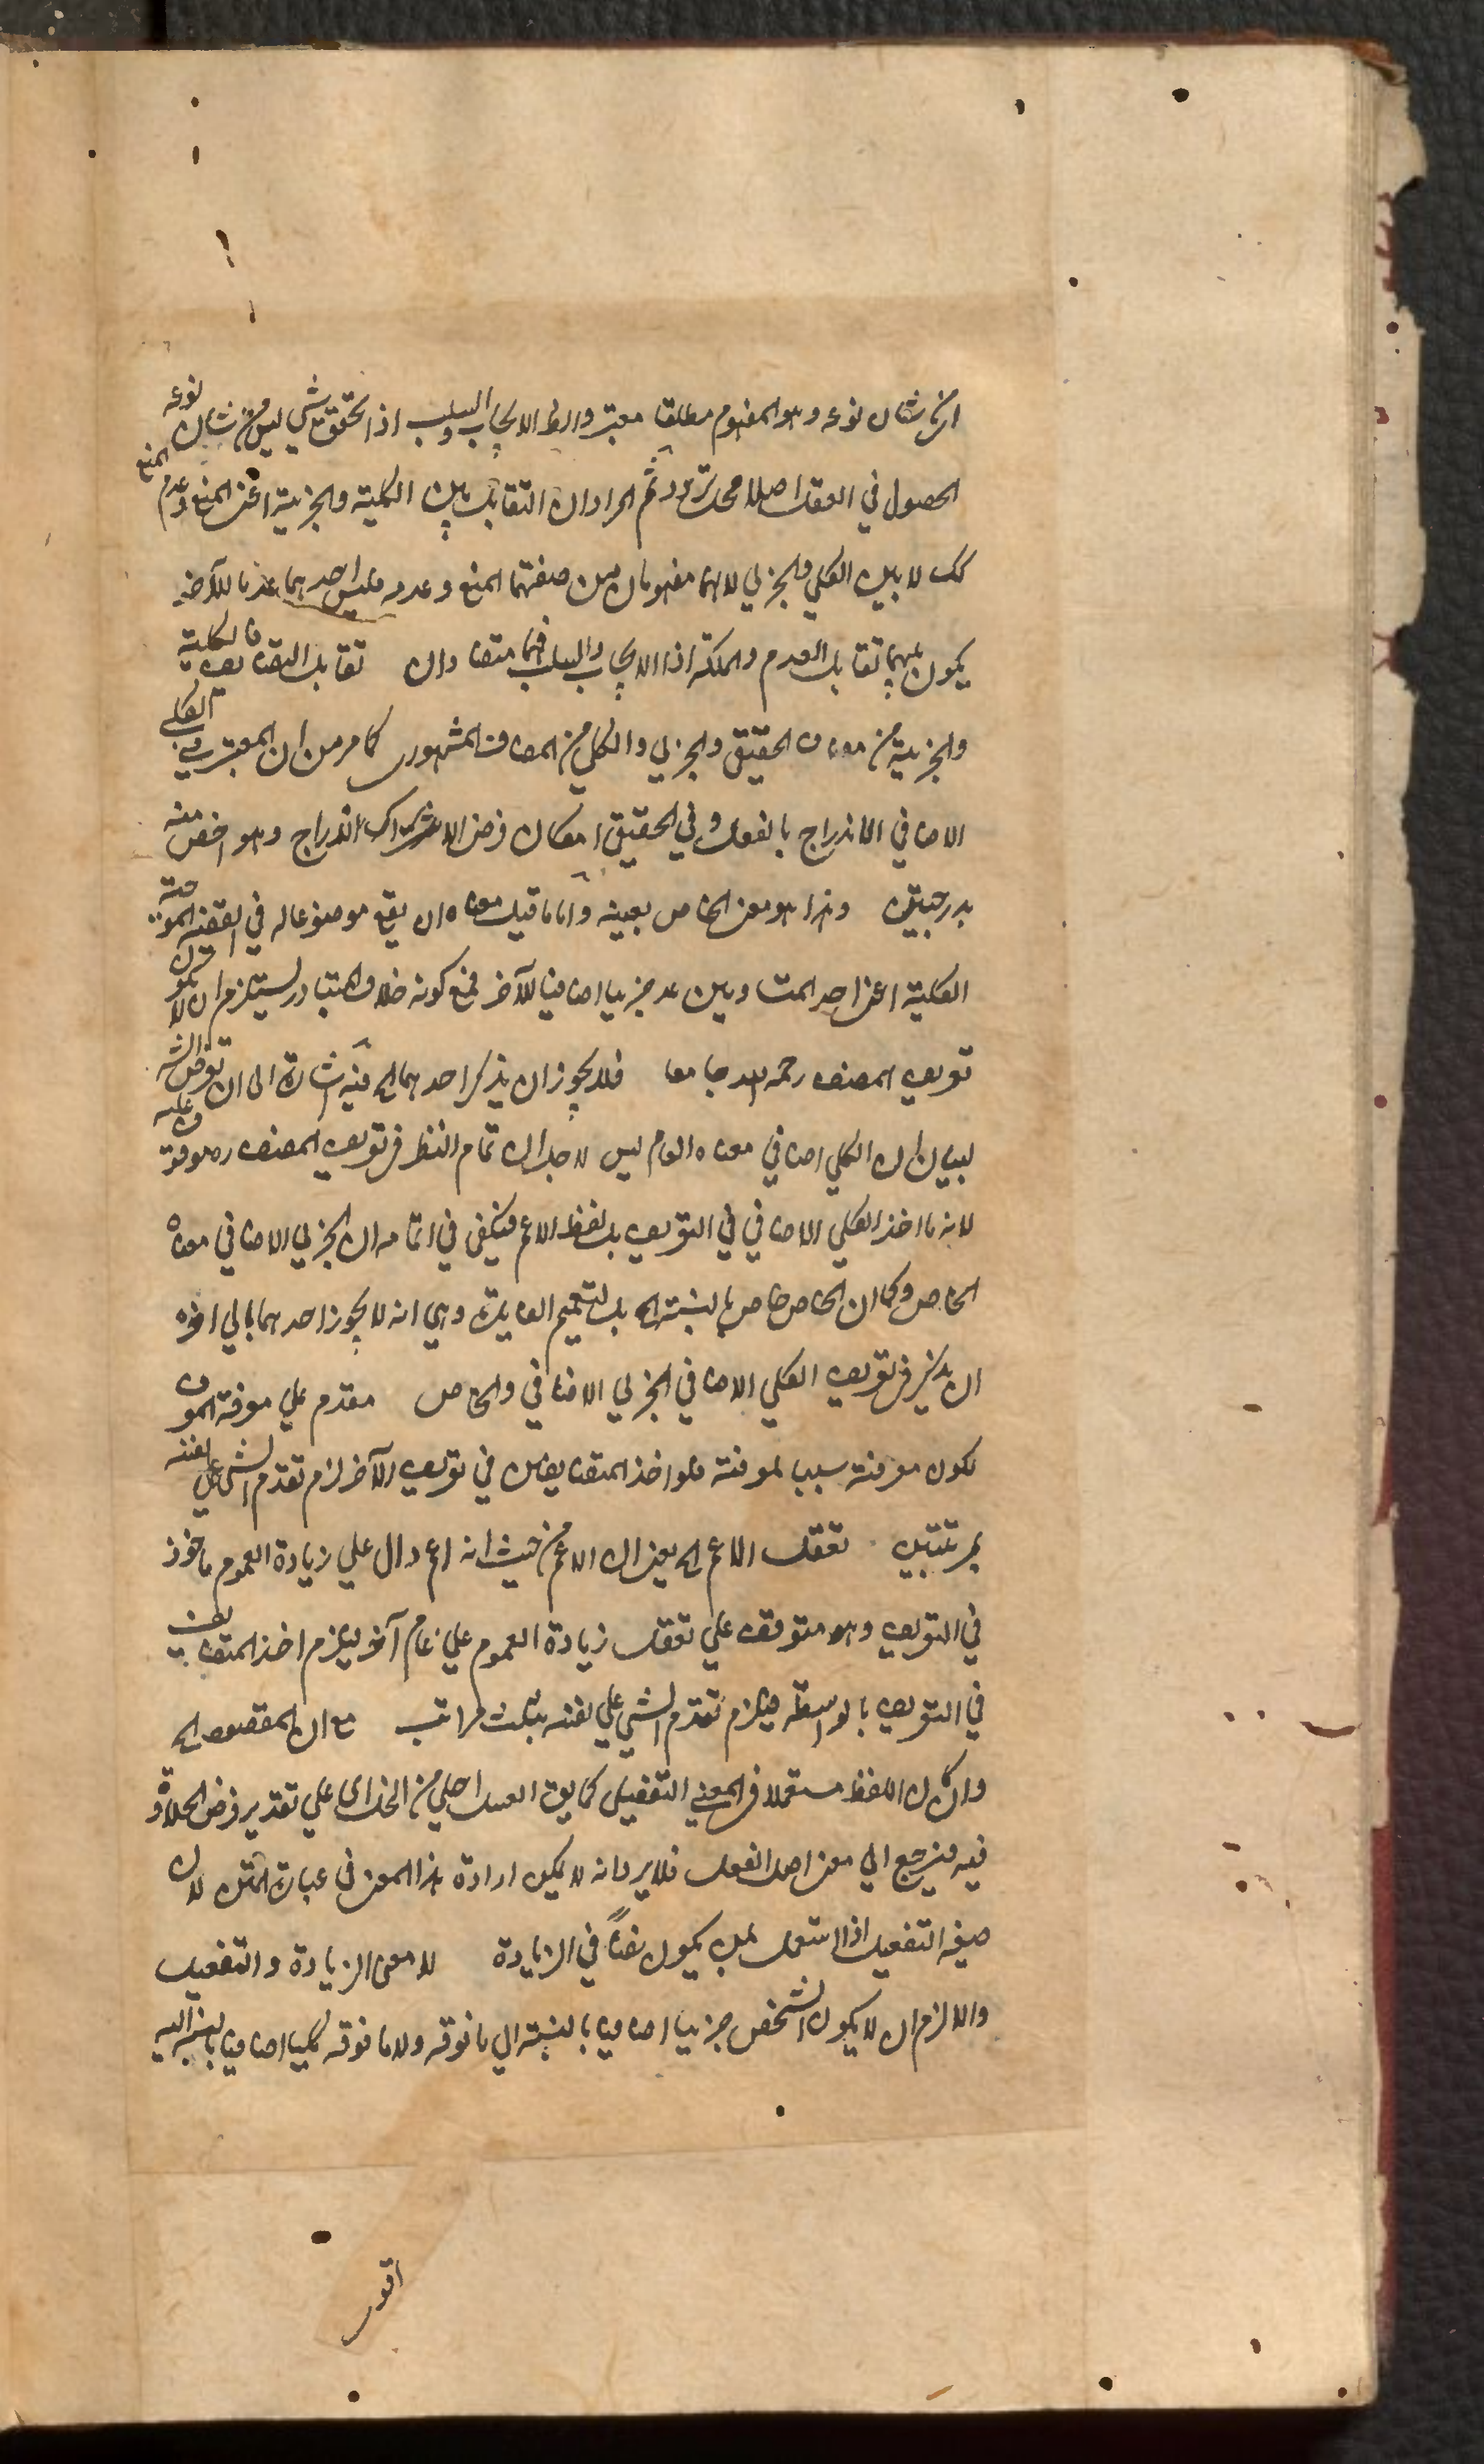 ان من شان نوعه وهو المفهوم مطلقا معتبر والا فالايجاب والسلب اذ تحقق شي ليس من شان نوعه
الحصول في العقل اصلا محل تردد ثم المراد ان التقابل بين الكلية والجزئية اعني المنع وعدم المنع
لا بين الكلي والجزئي لانهما مفهومان من صفتهما المنع وعدمه فليس احدهما عدما للآخر
يكون بينهما تقابل العدم والملكة اذا الايجاب والسلب فهما متضادان تقابل التضايف فالكلية
والجزئية من المضاف الحقيقي والجزئي والكلي من المضاف المشهوري كما مر من ان المعتبر في الكلي
الاضافي الاندراج بالفعل وفي الحقيقي امكان فرض الاشتراك اندراج وهو اخص منه
بدرجتين وهذا هو معنى الخاص بعينه واما ما قيل معناه ان يقع موضوعا له في القضية الموجبة
الكلية اعني احد المتساويين عد جزئيا اضافيا للآخر فمع كونه خلاف المتبادر يستلزم ان لا يكون
تعريف المصنف رحمه الله جامعا فلا يجوز ان يذكر احدهما الخ فيه اشارة الى ان تعرض الش
لبيان ان الكلي اضافي معناه العام ليس لاجل ان تمام النظر في تعريف المصنف ره موقوف عليه
لانه ما اخذ الكلي الاضافي في التعريف بل لفظ الاعم فيكفي في اتمامه ان الجزئي الاضافي معناه
الخاص وكما ان الخاص خاص بالنسبة الخ بل لتعميم الفايدة وهي انه لا يجوز احدهما بالى اخره
ان يذكر في تعريف الكلي الاضافي الجزئي الاضافي والخاص مقدم على معرفة المعرف
لكون معرفته سببا لمعرفته فلو اخذ المتضايفين في تعريف الآخر لزم تقدم الشي على نفسه
بمرتبتين تعقل الاعم الخ يعني ان الاعم من حيث انه اعم دال على زيادة العموم ماخوذ
في التعريف وهو متوقف على تعقل زيادة العموم على عام آخر فيلزم اخذ المتضايف
في التعريف بالواسطة فيلزم تقدم الشي على نفسه بثلث مراتب مع ان المقصود الخ
وان كان اللفظ مستعملا في المعنى التفضيلي كما يق العسل احلى من الخل اى على تقدير فرض الحلاوة
فيه فيرجع الى معنى اصل الفعل فلا يرد انه لا يمكن ارادة هذا المعنى في عبارة المتن لان
صيغة التفضيل اذا استعمل بمن يكون نصا في الزيادة لا معنى الزيادة والتفضيل
والا لزم ان لا يكون الشخص جزئيا اضافيا بالنسبة الى ما فوقه ولا ما فوقه كليا اضافيا بالنسبة اليه
اقول